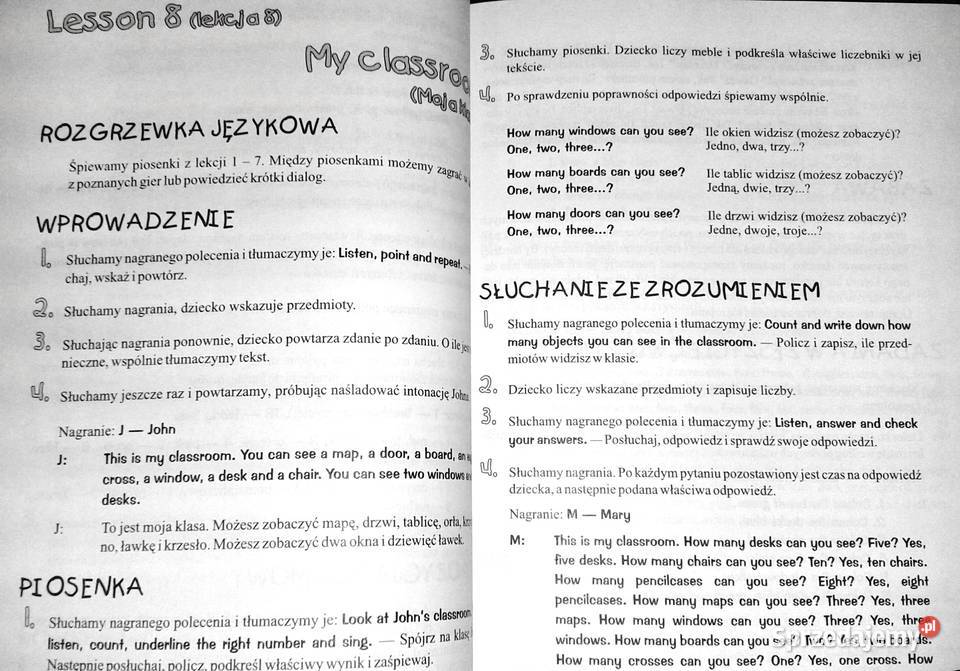 Lesson 8 (lekcja 8)
My classroo
(Moja kla
ROZGRZEWKA JĘZYKOWA
Śpiewamy piosenki z lekcji 1 – 7. Między piosenkami możemy zagrać w
z poznanych gier lub powiedzieć krótki dialog.
WPROWADZENIE
1. Słuchamy nagranego polecenia i tłumaczymy je: Listen, point and repeat. –
chaj, wskaż i powtórz.
2. Słuchamy nagrania, dziecko wskazuje przedmioty.
3. Słuchając nagrania ponownie, dziecko powtarza zdanie po zdaniu. O ile jest
nieczne, wspólnie tłumaczymy tekst.
4. Słuchamy jeszcze raz i powtarzamy, próbując naśladować intonację Johna
Nagranie: J — John
J: This is my classroom. You can see a map, a door, a board, an
cross, a window, a desk and a chair. You can see two windows
desks.
J: To jest moja klasa. Możesz zobaczyć mapę, drzwi, tablicę, orła,
no, ławkę i krzesło. Możesz zobaczyć dwa okna i dziewięć ławek.
PIOSENKA
1. Słuchamy nagranego polecenia i tłumaczymy je: Look at John's classroom
listen, count, underline the right number and sing. — Spójrz na klasę
Następnie posłuchaj, policz, podkreśl właściwy wynik i zaśpiewaj.
3. Słuchamy piosenki. Dziecko liczy meble i podkreśla właściwe liczebniki w jej
tekście.
4. Po sprawdzeniu poprawności odpowiedzi śpiewamy wspólnie.
How many windows can you see? Ile okien widzisz (możesz zobaczyć)?
One, two, three...? Jedno, dwa, trzy...?
How many boards can you see? Ile tablic widzisz (możesz zobaczyć)?
One, two, three...? Jedną, dwie, trzy...?
How many doors can you see? Ile drzwi widzisz (możesz zobaczyć)?
One, two, three...? Jedne, dwoje, troje...?
SŁUCHANIE ZE ZROZUMIENIEM
1. Słuchamy nagranego polecenia i tłumaczymy je: Count and write down how
many objects you can see in the classroom. — Policz i zapisz, ile przed-
miotów widzisz w klasie.
2. Dziecko liczy wskazane przedmioty i zapisuje liczby.
3. Słuchamy nagranego polecenia i tłumaczymy je: Listen, answer and check
your answers. — Posłuchaj, odpowiedz i sprawdź swoje odpowiedzi.
4. Słuchamy nagrania. Po każdym pytaniu pozostawiony jest czas na odpowiedź
dziecka, a następnie podana właściwa odpowiedź.
Nagranie: M — Mary
M: This is my classroom. How many desks can you see? Five? Yes,
five desks. How many chairs can you see? Ten? Yes, ten chairs.
How many pencilcases can you see? Eight? Yes, eight
pencilcases. How many maps can you see? Three? Yes, three
maps. How many windows can you see? Three? Yes, three
windows. How many boards can you see? Two? Yes, two boards.
How many crosses can you see? One? Yes, one cross. How
Sprzedajemy.pl